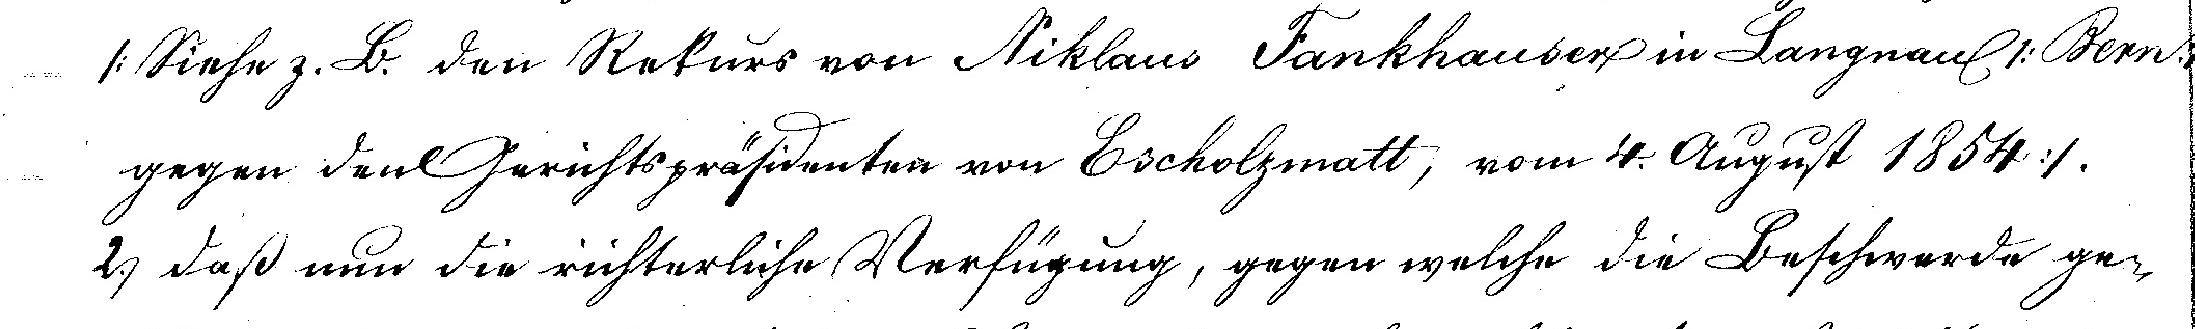 /: Siehe z. B. den Rekurs von Niklaus Fankhauser in Langnau /: Bern :/
gegen den Gerichtspräsidenten von Escholzmatt, vom 4. August 1854 :/.
2) daß nun die richterliche Verfügung, gegen welche die Beschwerde ge-